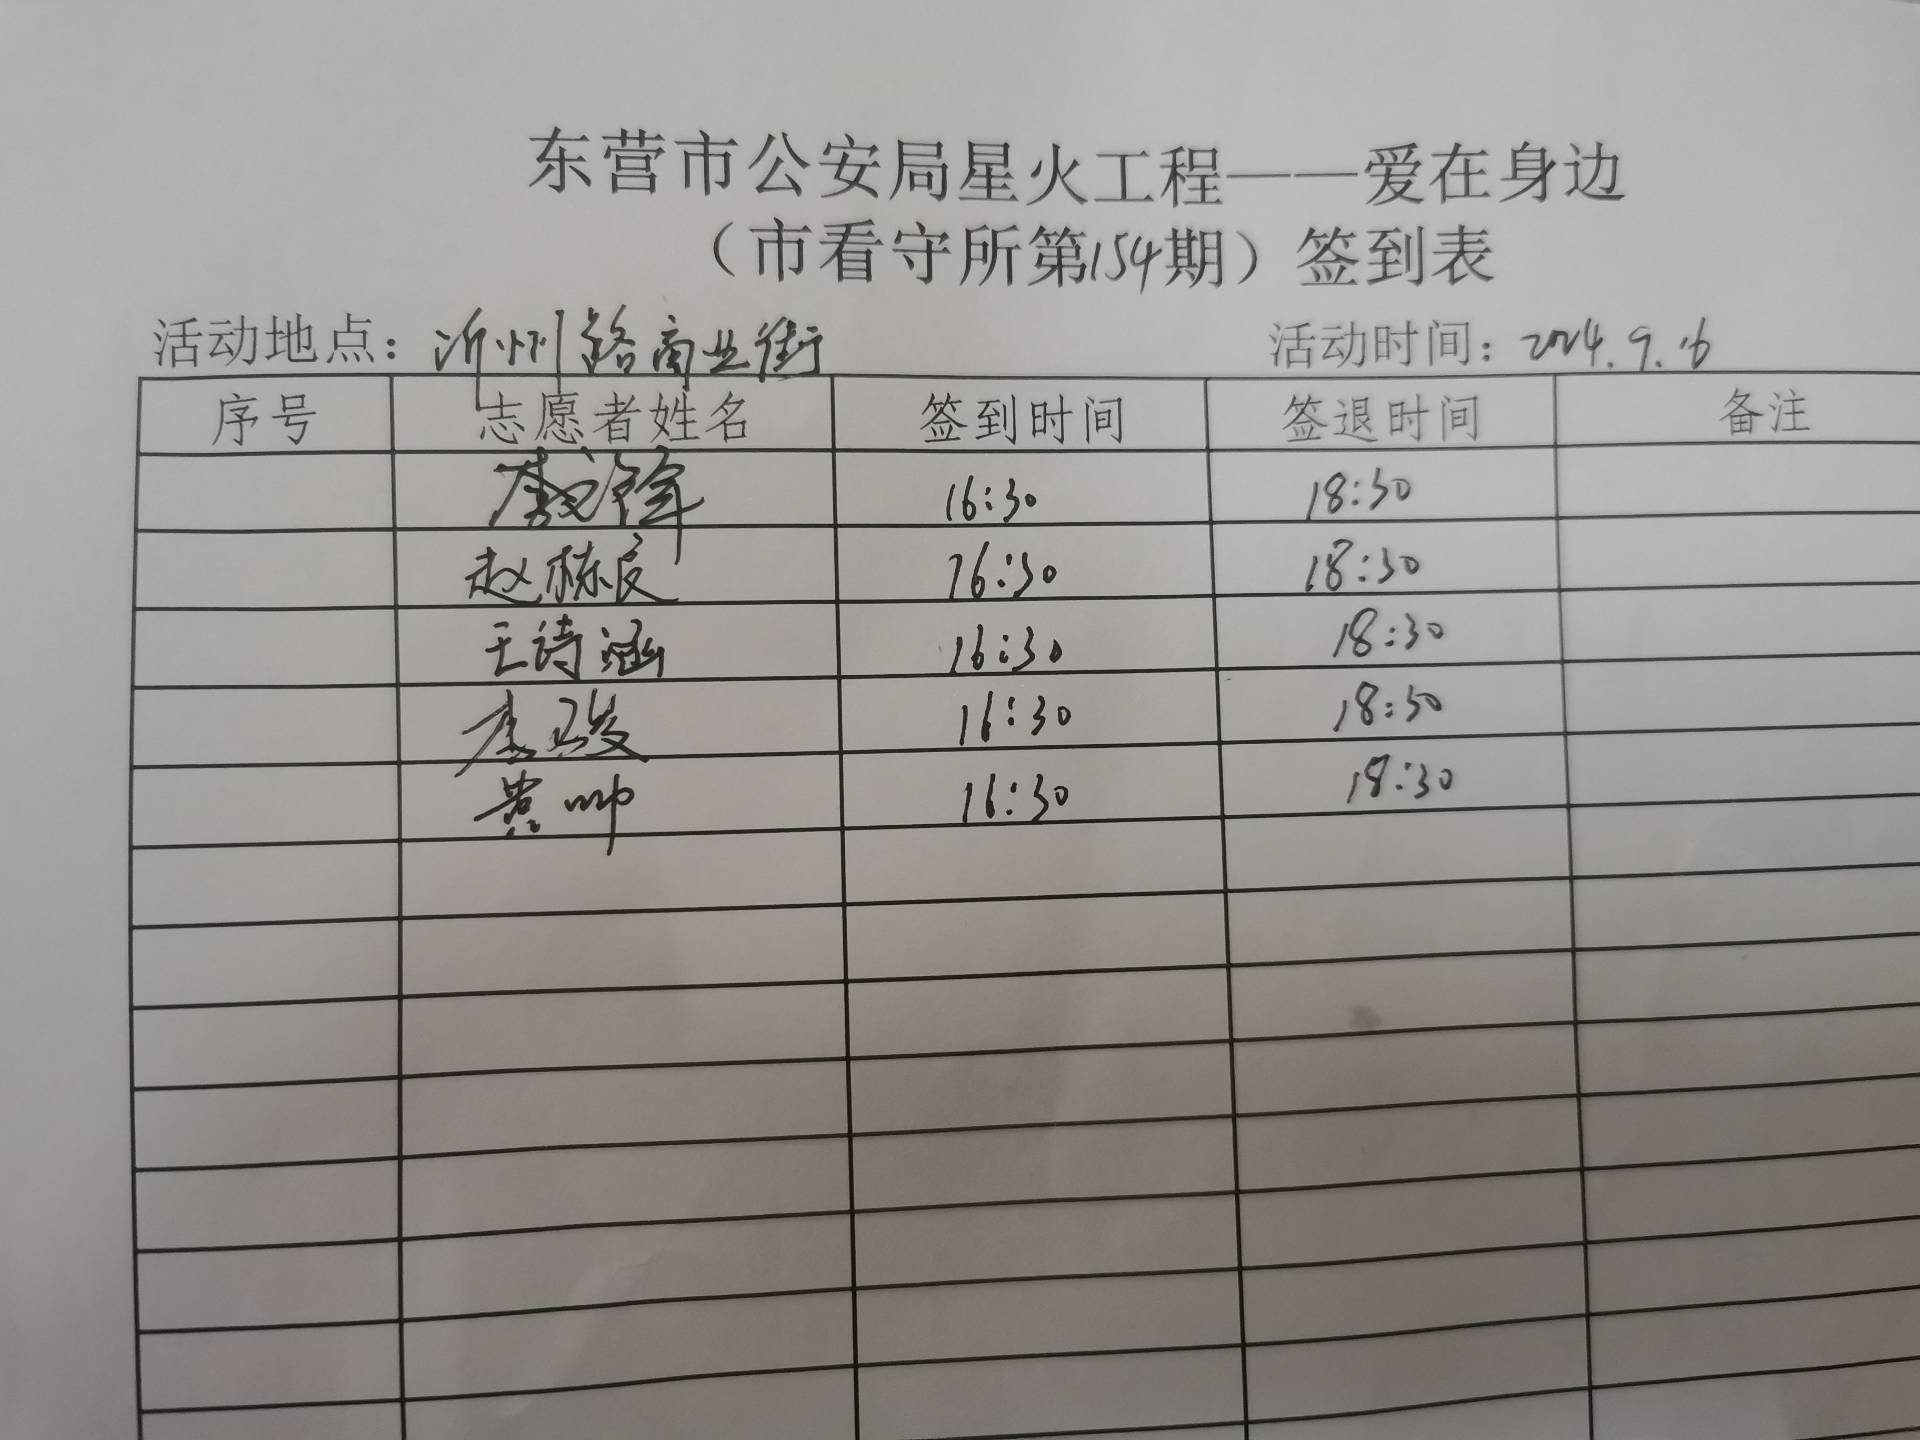 东营市公安局星火工程——爱在身边
（市看守所第154期）签到表
活动地点：沂州路商业街 活动时间：2024.9.16
序号 志愿者姓名 签到时间 签退时间 备注
16:30 18:30
赵栋良 16:30 18:30
王诗涵 16:30 18:30
16:30 18:30
黄帅 16:30 18:30